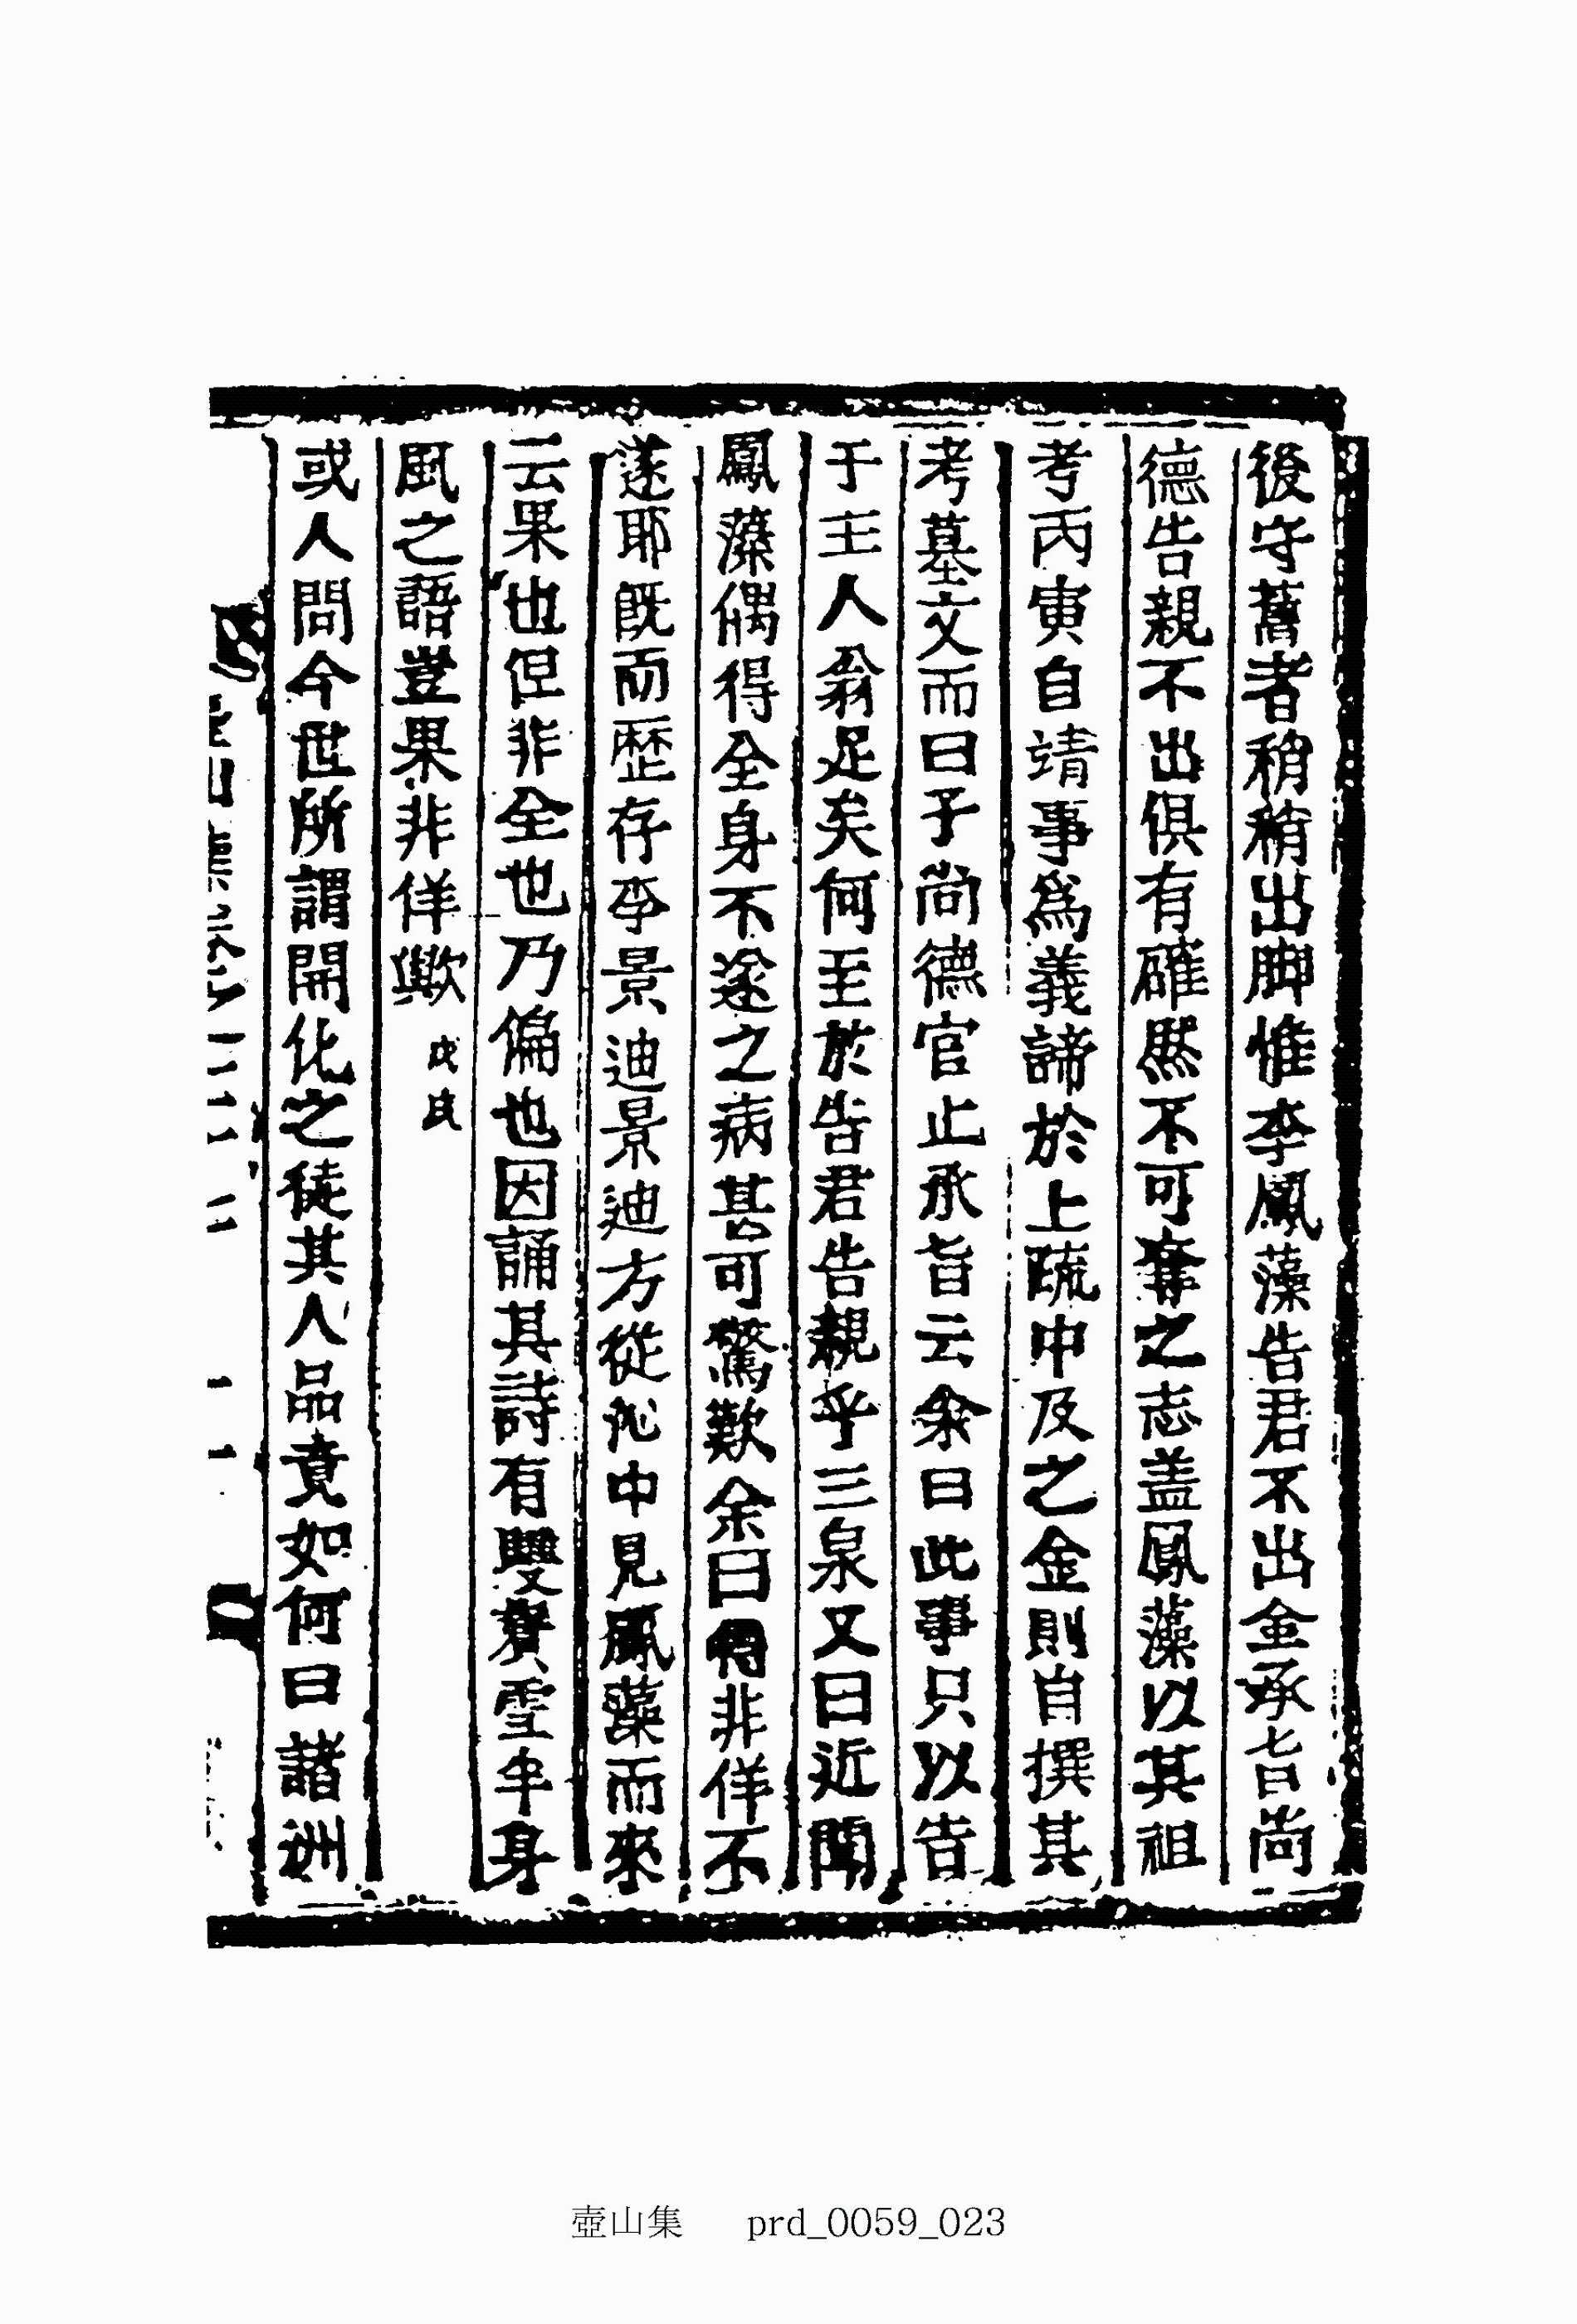 後守舊者稍稍出脚惟李鳳藻告君不出金承旨尚
德告親不出俱有確然不可奪之志盖鳳藻以其祖
考丙寅自靖事爲義諦於上疏中及之金則自撰其
考墓文而曰子尚德官止承旨云余曰此事只以告
于主人翁足矣何至於告君告親乎三泉又曰近聞
鳳藻偶得全身不遂之病甚可驚歎余曰得非佯不
遂耶旣而歷存李景迪景迪方從沁中見鳳藻而來
云果也但非全也乃偏也因誦其詩有雙鬢雪牟身
風之語豈果非佯歟 戊戌
或人問今世所謂開化之徒其人品竟如何曰諸洲
壺山集 prd_0059_023